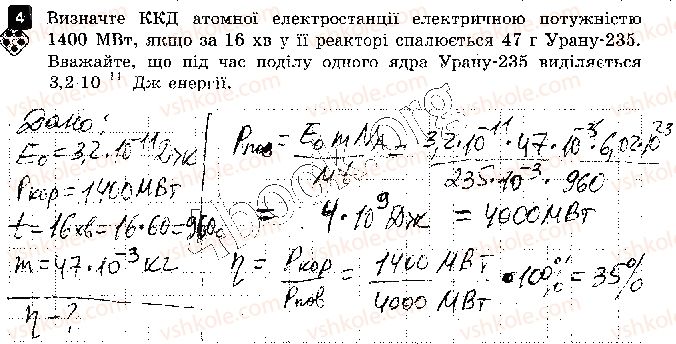 4 Визначте ККД атомної електростанції електричною потужністю
1400 МВт, якщо за 16 хв у її реакторі спалюється 47 г Урану-235.
Вважайте, що під час поділу одного ядра Урану-235 виділяється
3,2·10⁻¹¹ Дж енергії.
Дано:
E₀=3,2·10⁻¹¹Дж
Pкор=1400МВт
t=16хв=16·60=960с
m=47·10⁻³кг
η-?
Pпов = E₀ m Nₐ / Mt = 3,2·10⁻¹¹·47·10⁻³·6,02·10²³ / 235·10⁻³·960
= 4·10⁹Дж = 4000МВт
η = Pкор / Pпов = 1400 МВт / 4000 МВт ·100% = 35%
4book.org
vshkole.com